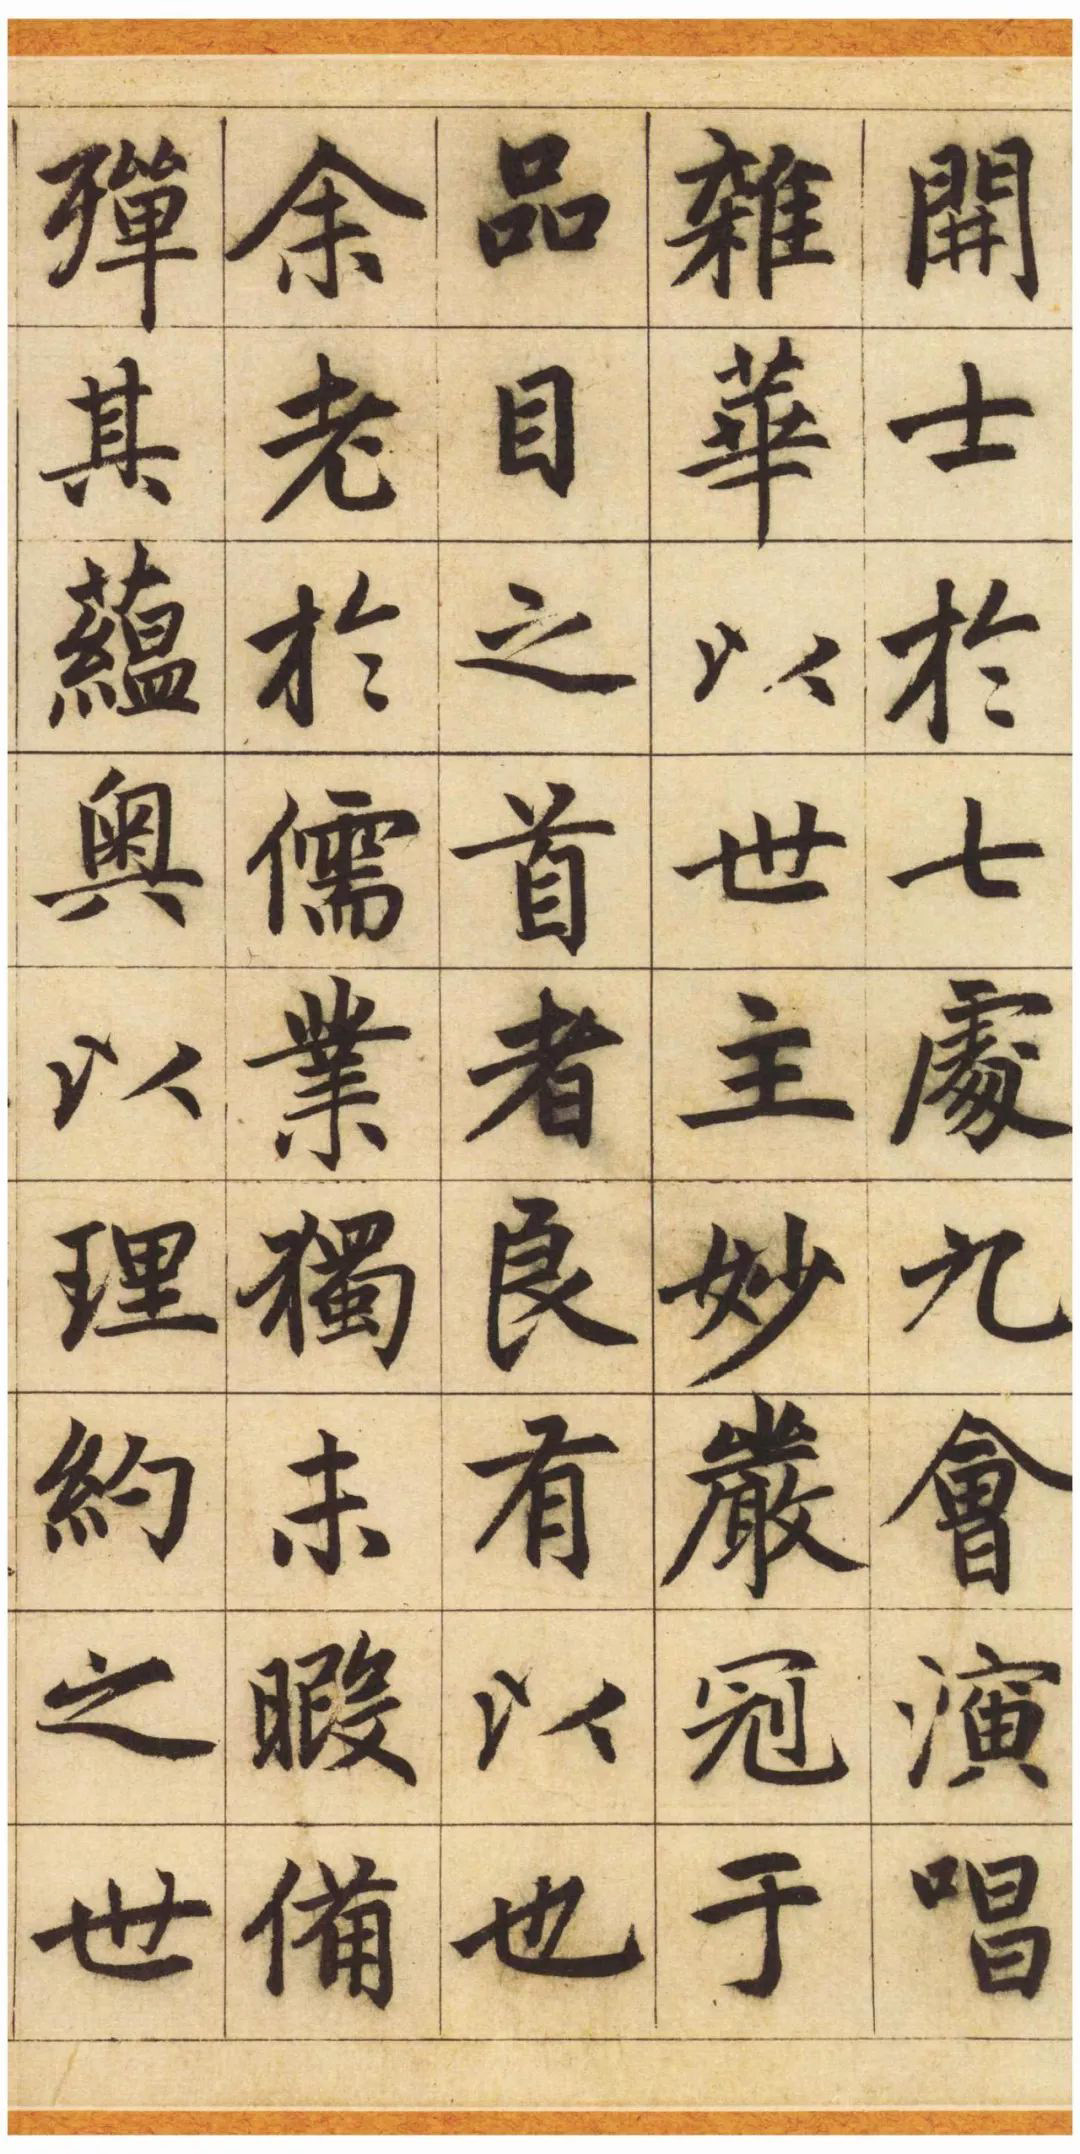 開士於七處九會演唱
雜華以世主妙嚴冠于
品目之首者良有以也
余老於儒業獨未暇備
殫其蘊奧以理約之世